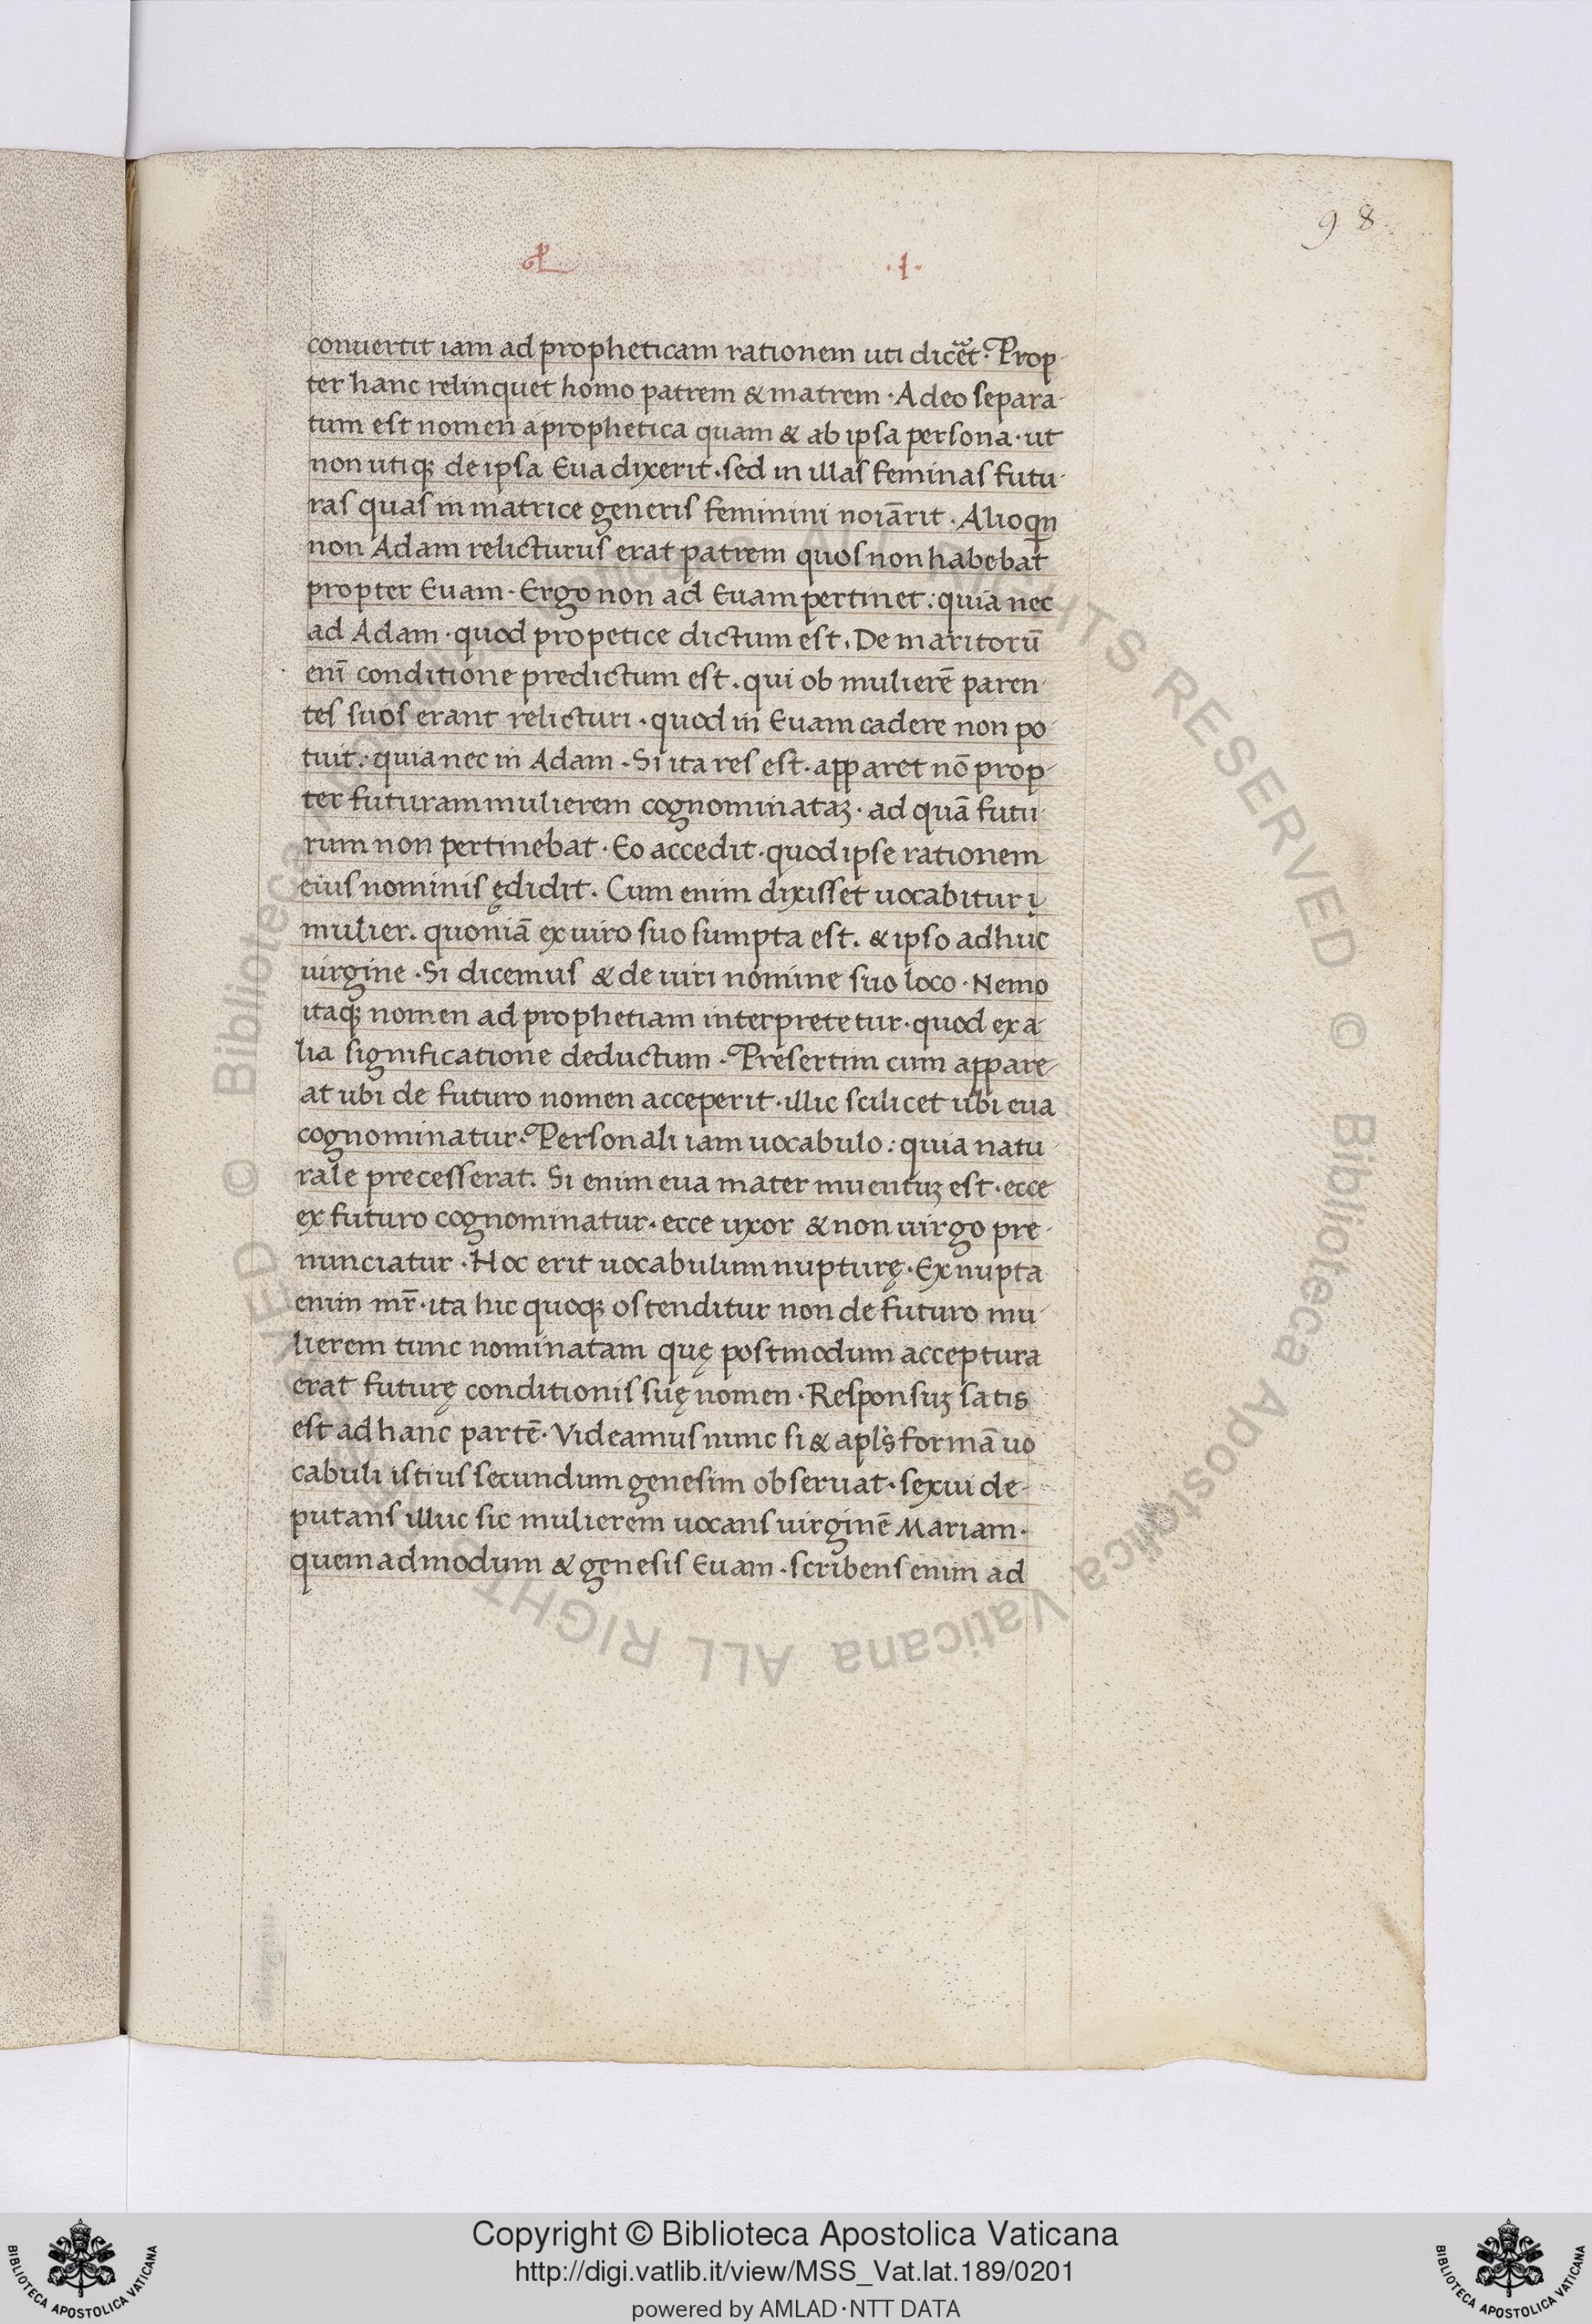 98
.I.
conuertit iam ad propheticam rationem uti dicēt. Prop
ter hanc relinquet homo patrem & matrem. Adeo separa
tum est nomen a prophetica quam & ab ipsa persona. ut
non utiqꝫ de ipsa Eua dixerit. sed in illas feminas futu
ras quas in matrice generis feminini noıārit. Alioqn
non Adam relicturus erat patrem quos non habebat
propter Euam. Ergo non ad Euam pertinet: quia nec
ad Adam. quod propetice dictum est. De maritorū
enī conditione predictum est. qui ob mulierē paren
tes suos erant relicturi. quod in Euam cadere non po
tuit: quia nec in Adam. Si ita res est. apparet nō prop
ter futuram mulierem cognominataꝫ. ad quā futu
rum non pertinebat. Eo accedit. quod ipse rationem
eius nominis ędidit. Cum enim dixisset uocabitur
mulier. quoniā ex uiro suo sumpta est. & ipso adhuc
uirgine. Si dicemus & de uiri nomine suo loco. Nemo
itaqꝫ nomen ad prophetiam interpretetur. quod ex a
lia significatione deductum. Presertim cum appare
at ubi de futuro nomen acceperit. illic scilicet ubi eua
cognominatur. Personali iam uocabulo: quia natu
rale precesserat. Si enim eua mater uiuentuꝫ est. ecce
ex futuro cognominatur. ecce uxor & non uirgo pre
nunciatur. Hoc erit uocabulum nupturę. Ex nupta
enim mr̄. ita hic quoqꝫ ostenditur non de futuro mu
lierem tunc nominatam quę postmodum acceptura
erat futurę conditionis suę nomen. Responsuꝫ satis
est ad hanc partē. Videamus nunc si & apls̄ formā uo
cabuli istius secundum genesim obseruat. sexui de
putans illuc sic mulierem uocans uirginē Mariam.
quemadmodum & genesis Euam. scribens enim ad
© Biblioteca Apostolica Vaticana ALL RIGHTS RESERVED © Biblioteca Apostolica Vaticana ALL RIGHTS RESERVED
Copyright © Biblioteca Apostolica Vaticana
http://digi.vatlib.it/view/MSS_Vat.lat.189/0201
powered by AMLAD·NTT DATA
BIBLIOTECA APOSTOLICA VATICANA
BIBLIOTECA APOSTOLICA VATICANA